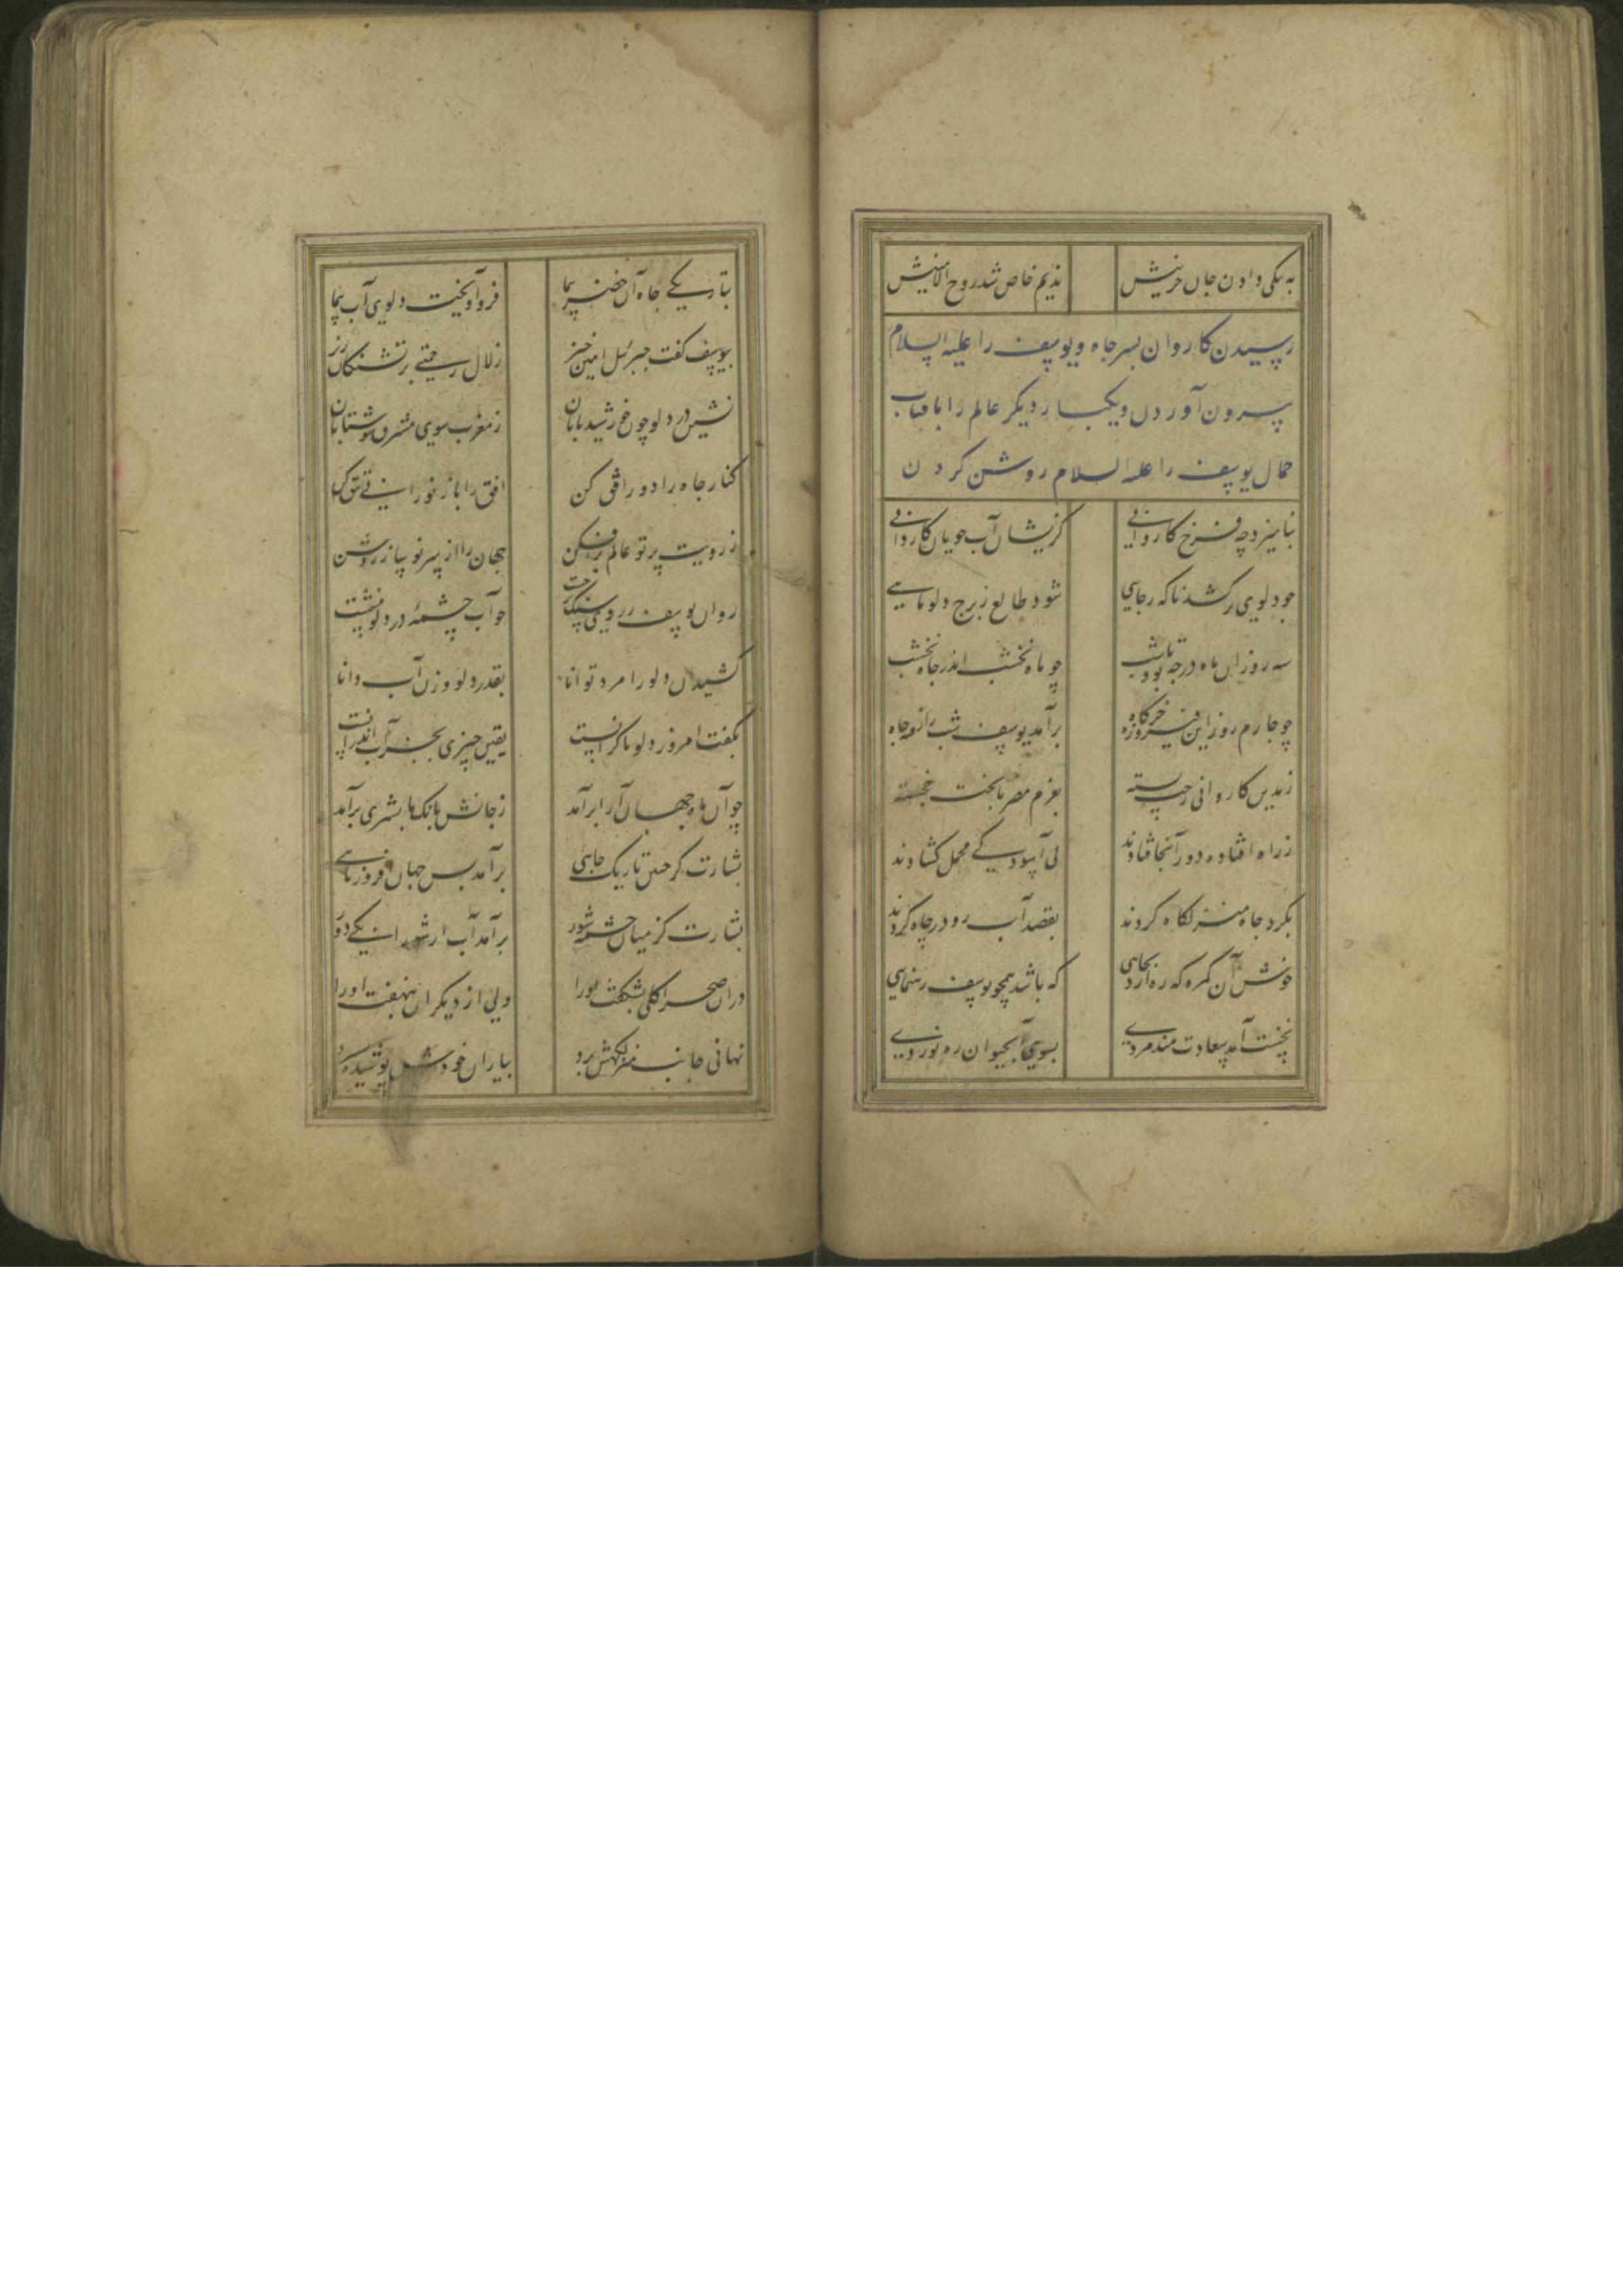 به نیکی دادن جان حزینش ندیم خاص شد روح الامینش
رسیدن کاروان بسر چاه و یوسف را علیه السلام
بیرون آوردن و یکبار دیگر عالم را بافتاب
جمال یوسف را علیه السلام روشن کردن
بنامیزد چه فرخ کاروانی کزیشان آب جویان کاروانی
چو دلوی برکشد ناکه ز چاهی شود طالع ز برج دلو ماهی
سه روز آن ماه در چه بود تا شب چو ماه نخشب اندر چاه نخشب
چو چارم روز ازین فیروزه خرکاه برآمد یوسف شب رفته در چاه
ز مدین کاروانی رخت بسته بعزم مصر با بخت خجسته
ز راه افتاده دور آنجا فتادند پی آسودکی محمل کشادند
بکرد چاه منزلکاه کردند بقصد آب رو در چاه کردند
خوش آن کمره که ره آرد بجایی که باشد همچو یوسف رهنمایی
نخست آمد سعادت مند مردی بسوی آب حیوان ره نوردی
بتاریکی چاه آن خضر سیما فرو آویخت دلوی آب پیما
بیوسف کفت جبرئیل امین خیز زلال رحمتی بر تشنکان ریز
نشین در دلو چون خورشید تابان ز مغرب سوی مشرق شو شتابان
کنار چاه را دور افق کن افق را باز نورانی تتق کن
ز رویت پرتو عالم برافکن جهان را از سر نو ساز روشن
روان یوسف ز روی سنک برجست چو آب چشمه در دلو بنشست
کشید آن دلو را مرد توانا بقدر دلو و وزن آب دانا
بکفت امروز دلو ما کرانست یقین چیزی بجز آب اندرانست
چو آن ماه جهان آرا برآمد ز جانش بانک یا بشری برآمد
بشارت کز چنین تاریک چاهی برآمد بس جهان افروز ماهی
بشارت کز میان چشمه شور برآمد آب ارشورانی یکی دور
در آن صحرا کلی بشکفت او را ولی از دیکران بنهفت او را
نهانی جانب منزلکهش برد بیاران خودش پوشیده